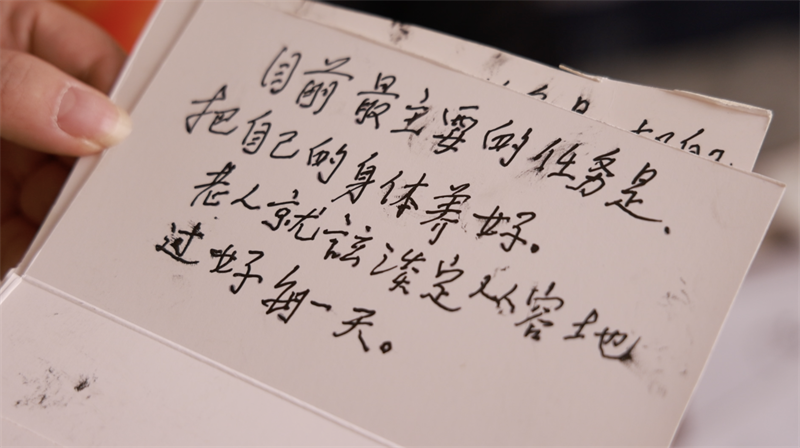 目前最主要的任务是、
把自己的身体养好。
老人就該淡定从容地
过好每一天。